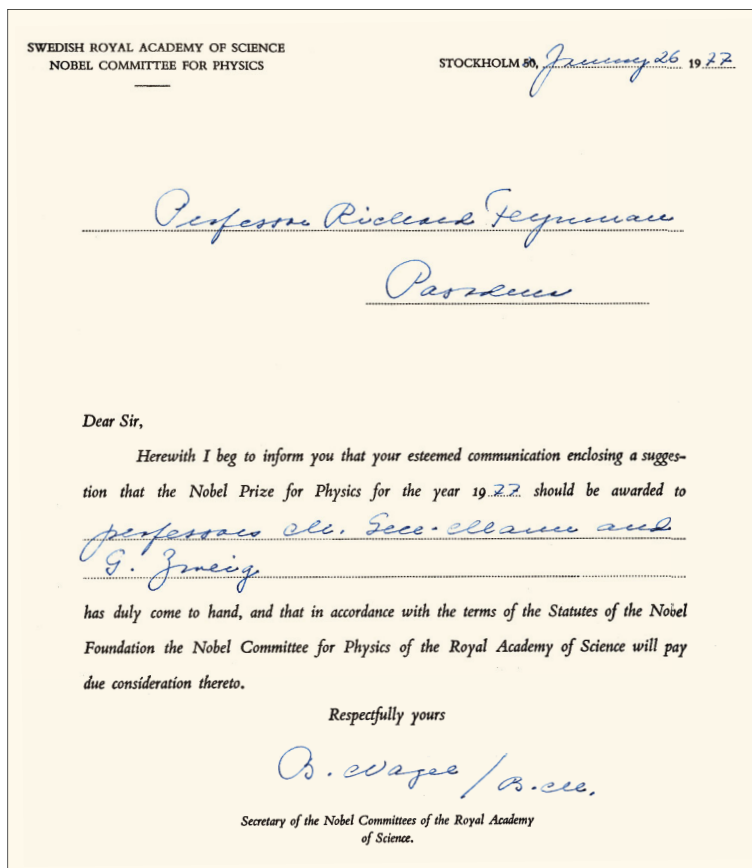 SWEDISH ROYAL ACADEMY OF SCIENCE
NOBEL COMMITTEE FOR PHYSICS
STOCKHOLM 50, January 26 1977
Professor Richard Feynman
Pasadena
Dear Sir,
Herewith I beg to inform you that your esteemed communication enclosing a sugges-
tion that the Nobel Prize for Physics for the year 1977 should be awarded to
professors M. Gell-Mann and
G. Zweig
has duly come to hand, and that in accordance with the terms of the Statutes of the Nobel
Foundation the Nobel Committee for Physics of the Royal Academy of Science will pay
due consideration thereto.
Respectfully yours
B. Nagel / B.M.
Secretary of the Nobel Committees of the Royal Academy
of Science.